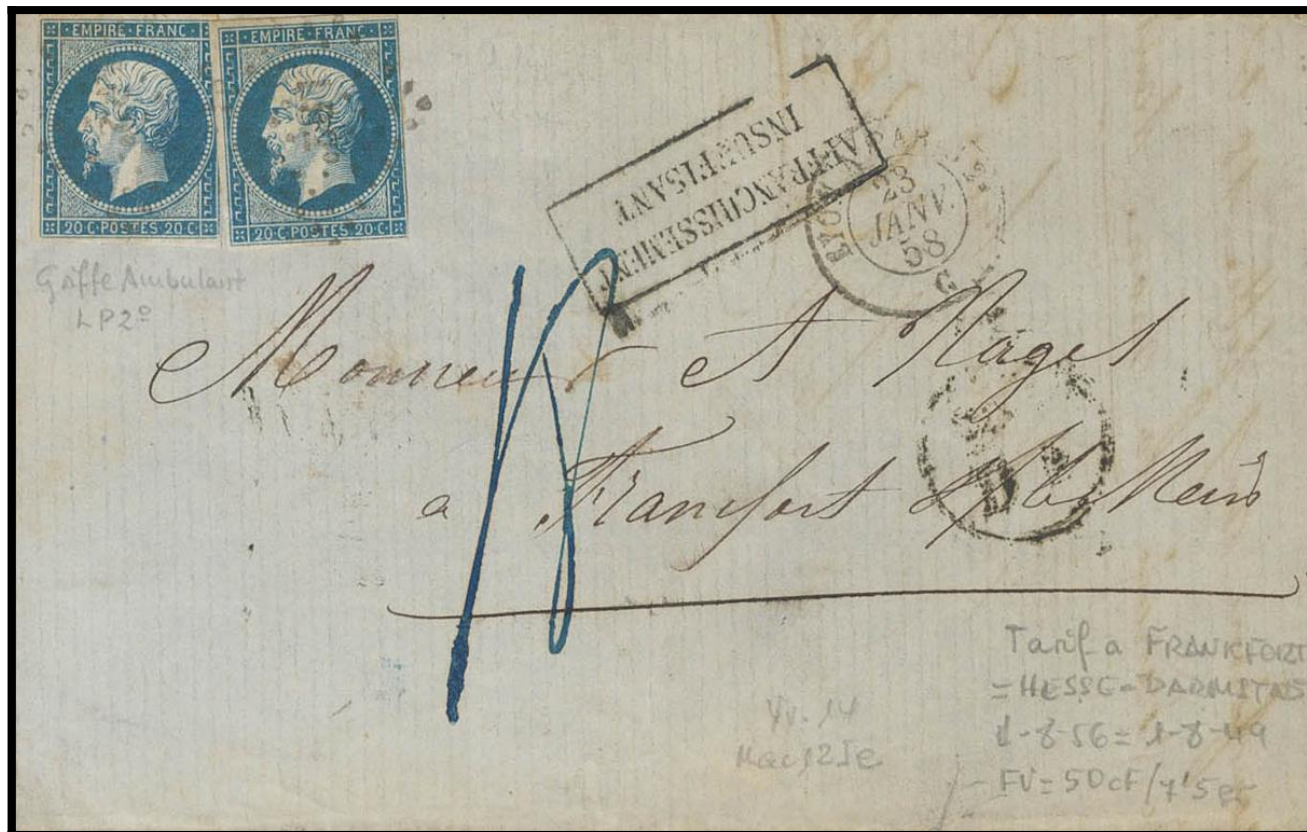 EMPIRE FRANC
EMPIRE FRANC
20 C POSTES 20 C
20 C POSTES 20 C
AFFRANCHISSEMENT
INSUFFISANT
LYON
23
JANV.
58
G
Griffe Ambulant
LP2º
Monsieur A Nagel
a Francfort s/ le Mein
Tarif a FRANKFORT
= HESSE-DARMSTAD
1-8-56 = 1-8-49
- FV = 50 cF/
Yv. 14